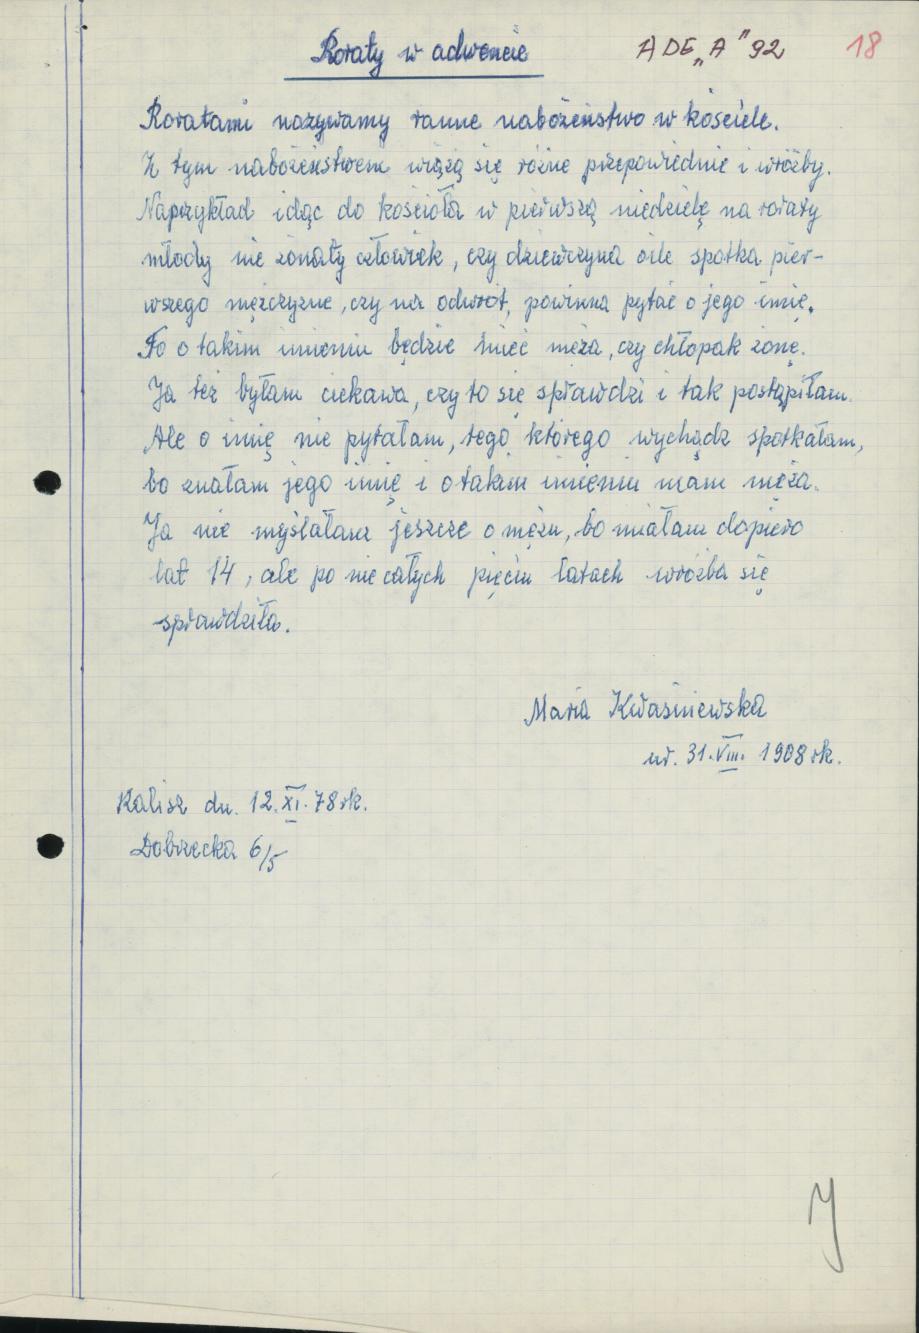 Roraty w adwencie
ADE „A" 92
18
Roratami nazywamy ranne nabożeństwo w kościele.
Z tym nabożeństwem wiążą się różne przepowiednie i wróżby.
Naprzykład idąc do kościoła w pierwszą niedzielę na roraty
młody nie żonaty człowiek, czy dziewczyna oile spotka pier-
wszego mężczyzne, czy na odwrót, powinna pytać o jego imię.
To o takim imieniu będzie mieć męża, czy chłopak żonę.
Ja też byłam ciekawa, czy to się sprawdzi i tak postąpiłam.
Ale o imię nie pytałam, tego którego spotkałam,
bo znałam jego imię i o takim imieniu mam męża.
Ja nie myślałam jeszcze o mężu, bo miałam dopiero
lat 14, ale po nie całych pięciu latach wróżba się
sprawdziła.
Maria Kwaśniewska
ur. 31.VIII. 1908 rk.
Kalisz dn. 12.XI.78 rk.
Dobrzecka 6/5